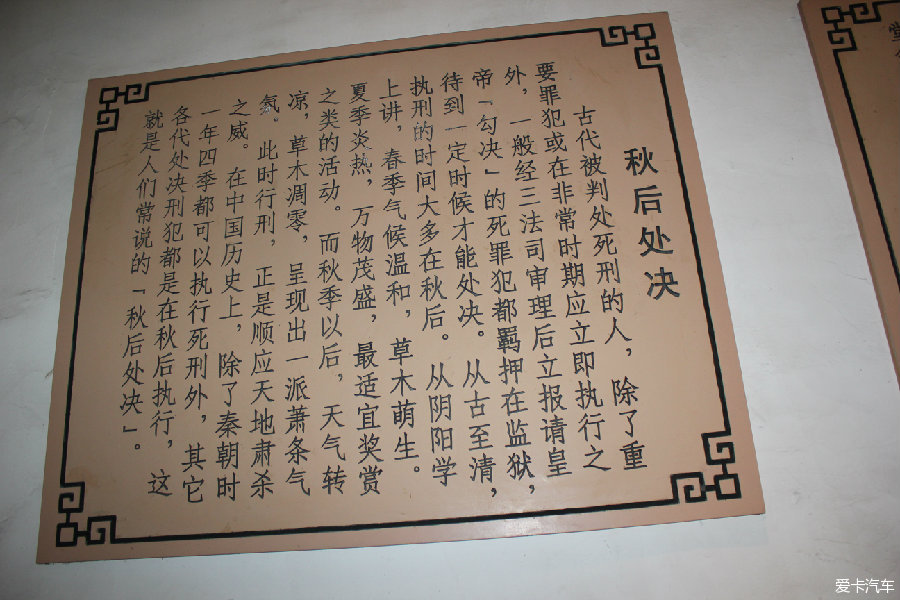 秋后处决
古代被判处死刑的人，除了重
要罪犯或在非常时期应立即执行之
外，一般经三法司审理后立报请皇
帝「勾决」的死罪犯都羁押在监狱，
待到一定时候才能处决。从古至清，
执刑的时间大多在秋后。从阴阳学
上讲，春季气候温和，草木萌生。
夏季炎热，万物茂盛，最适宜奖赏
之类的活动。而秋季以后，天气转
凉，草木凋零，呈现出一派萧条气
氛。此时行刑，正是顺应天地肃杀
之威。在中国历史上，除了秦朝时
一年四季都可以执行死刑外，其它
各代处决刑犯都是在秋后执行，这
就是人们常说的「秋后处决」。
爱卡汽车